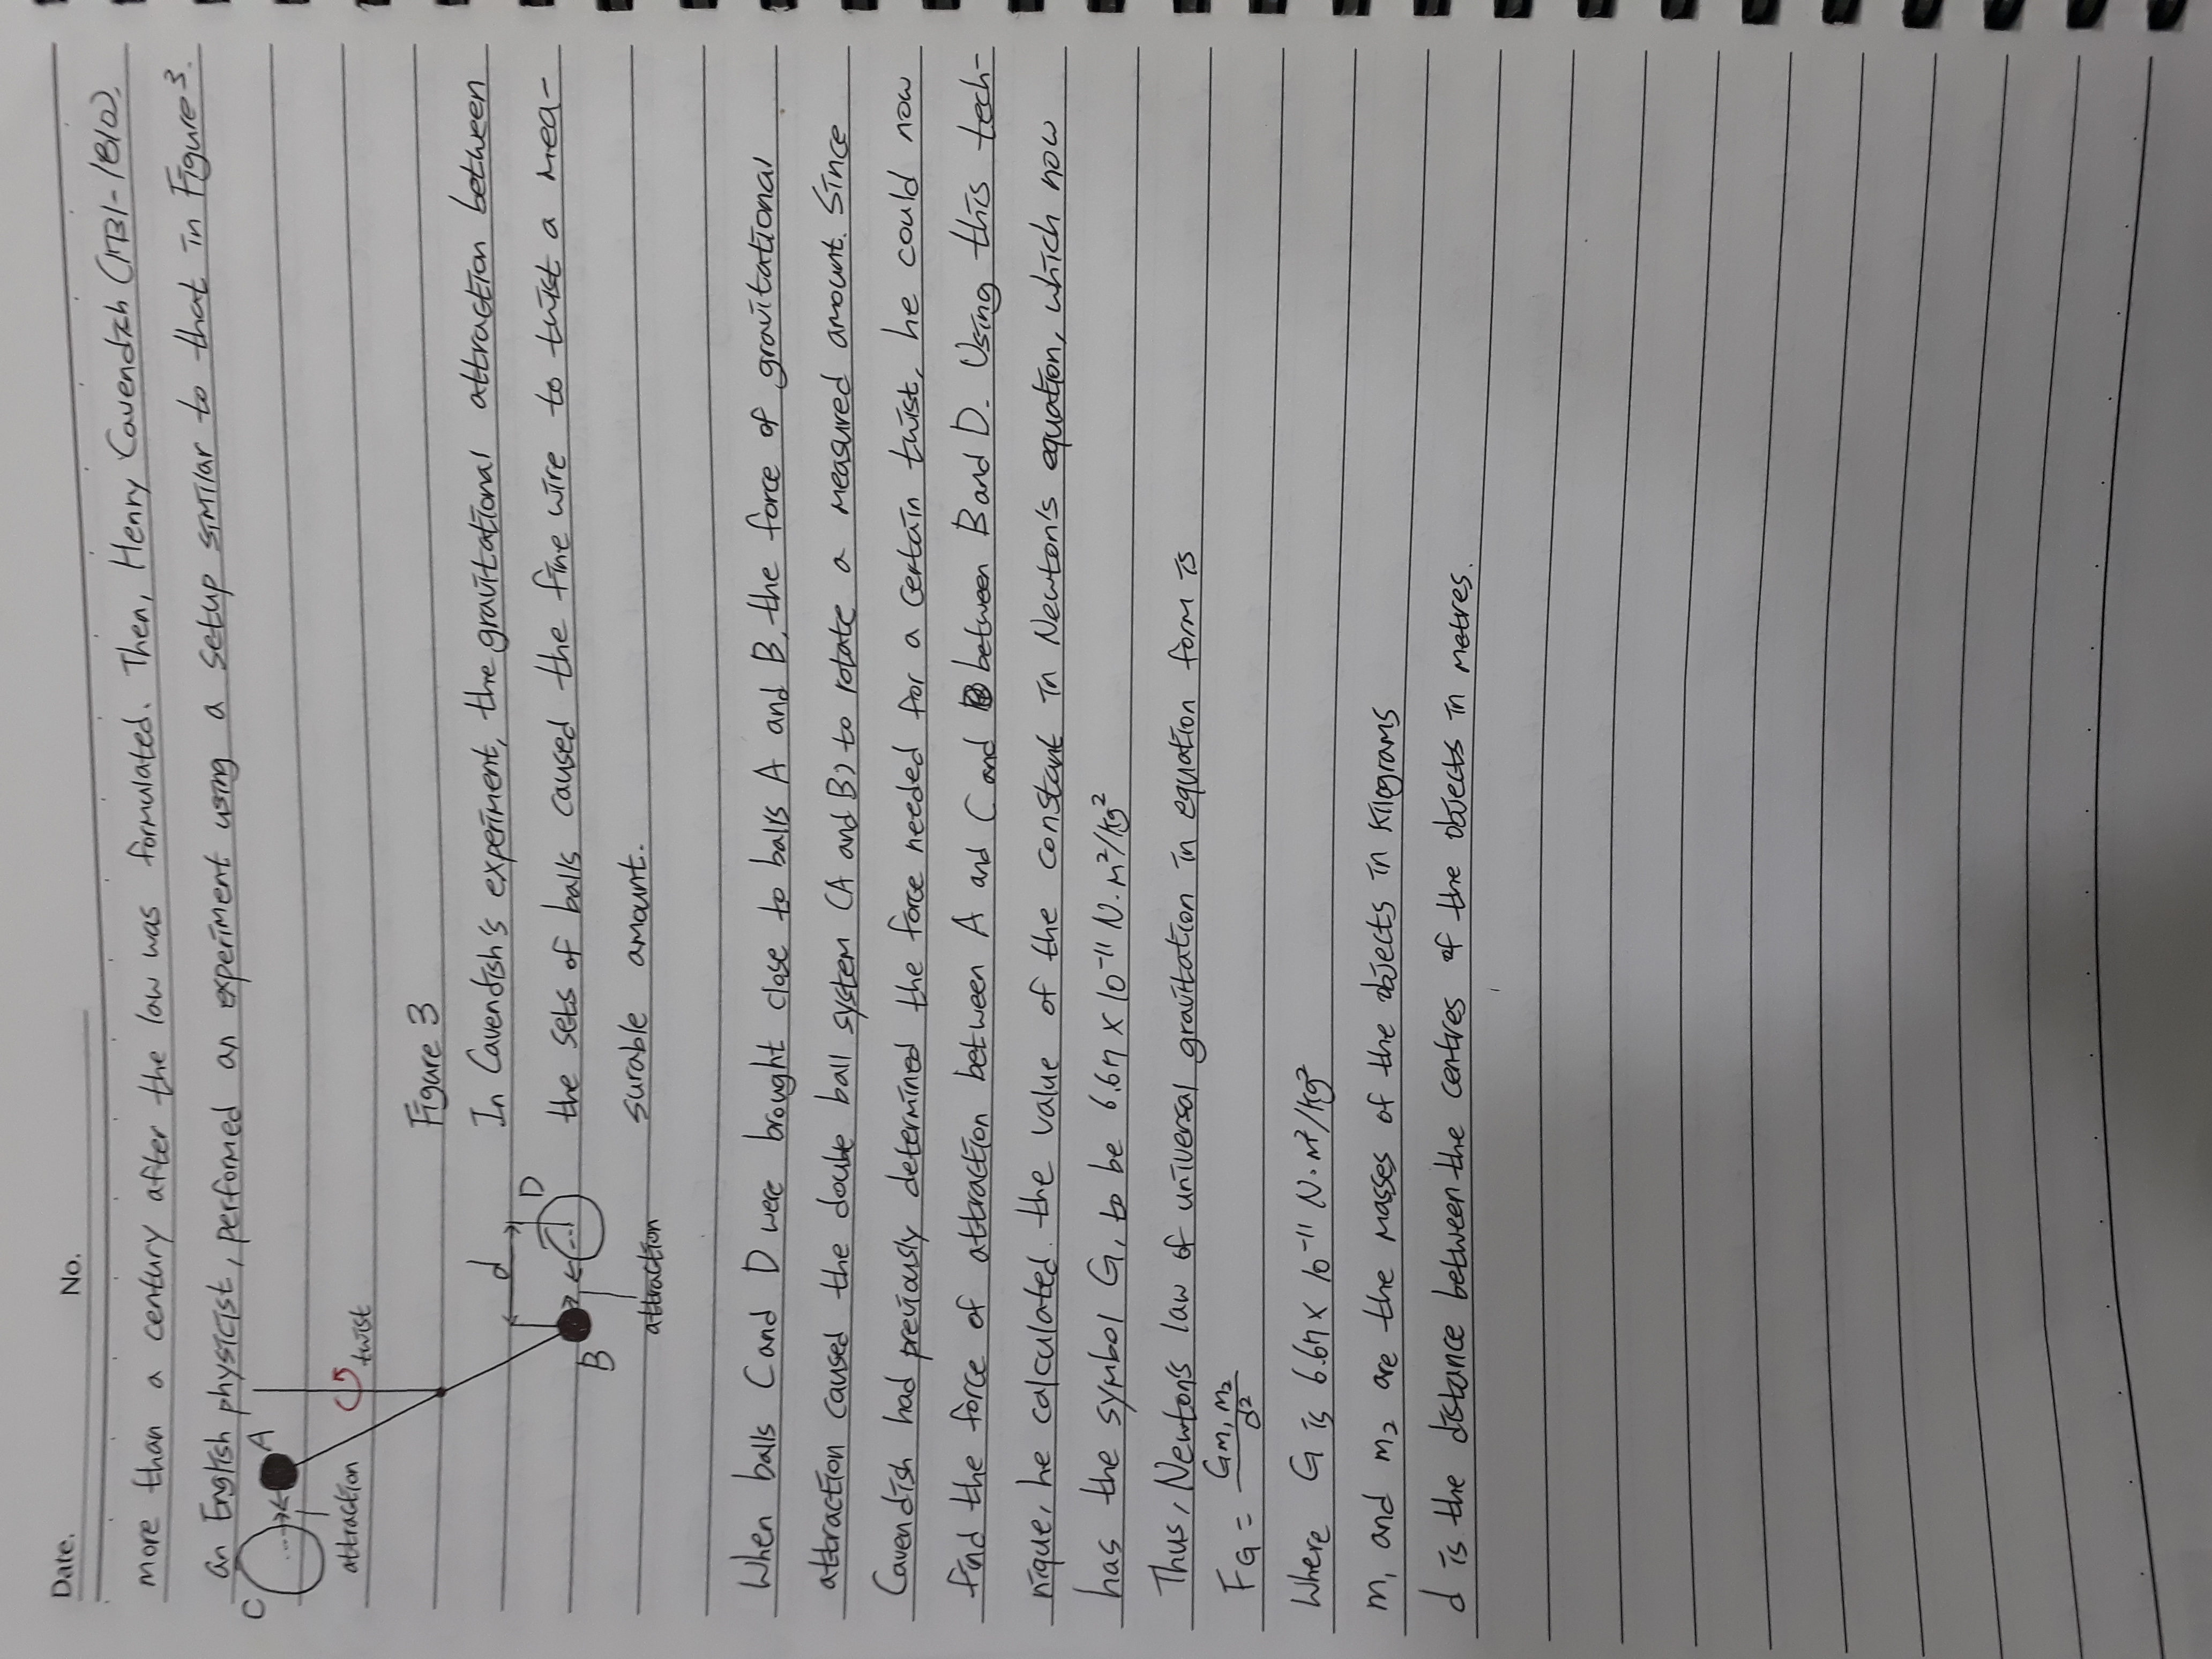 Date.
No.
more than a century after the law was formulated. Then, Henry Cavendish (1731-1810),
an English physicist, performed an experiment using a setup similar to that in Figure 3.
C
A
attraction
twist
d
D
B
attraction
Figure 3
In Cavendish's experiment, the gravitational attraction between
the sets of balls caused the fine wire to twist a mea-
surable amount.
When balls C and D were brought close to balls A and B, the force of gravitational
attraction caused the double ball system (A and B) to rotate a measured amount. Since
Cavendish had previously determined the force needed for a certain twist, he could now
find the force of attraction between A and C and between B and D. Using this tech-
nique, he calculated the value of the constant in Newton's equation, which now
has the symbol G, to be 6.67 × 10⁻¹¹ N·m²/kg²
Thus, Newton's law of universal gravitation in equation form is
F_G = Gm₁m₂/d²
Where G is 6.67 × 10⁻¹¹ N·m²/kg²
m₁ and m₂ are the masses of the objects in kilograms
d is the distance between the centres of the objects in metres.